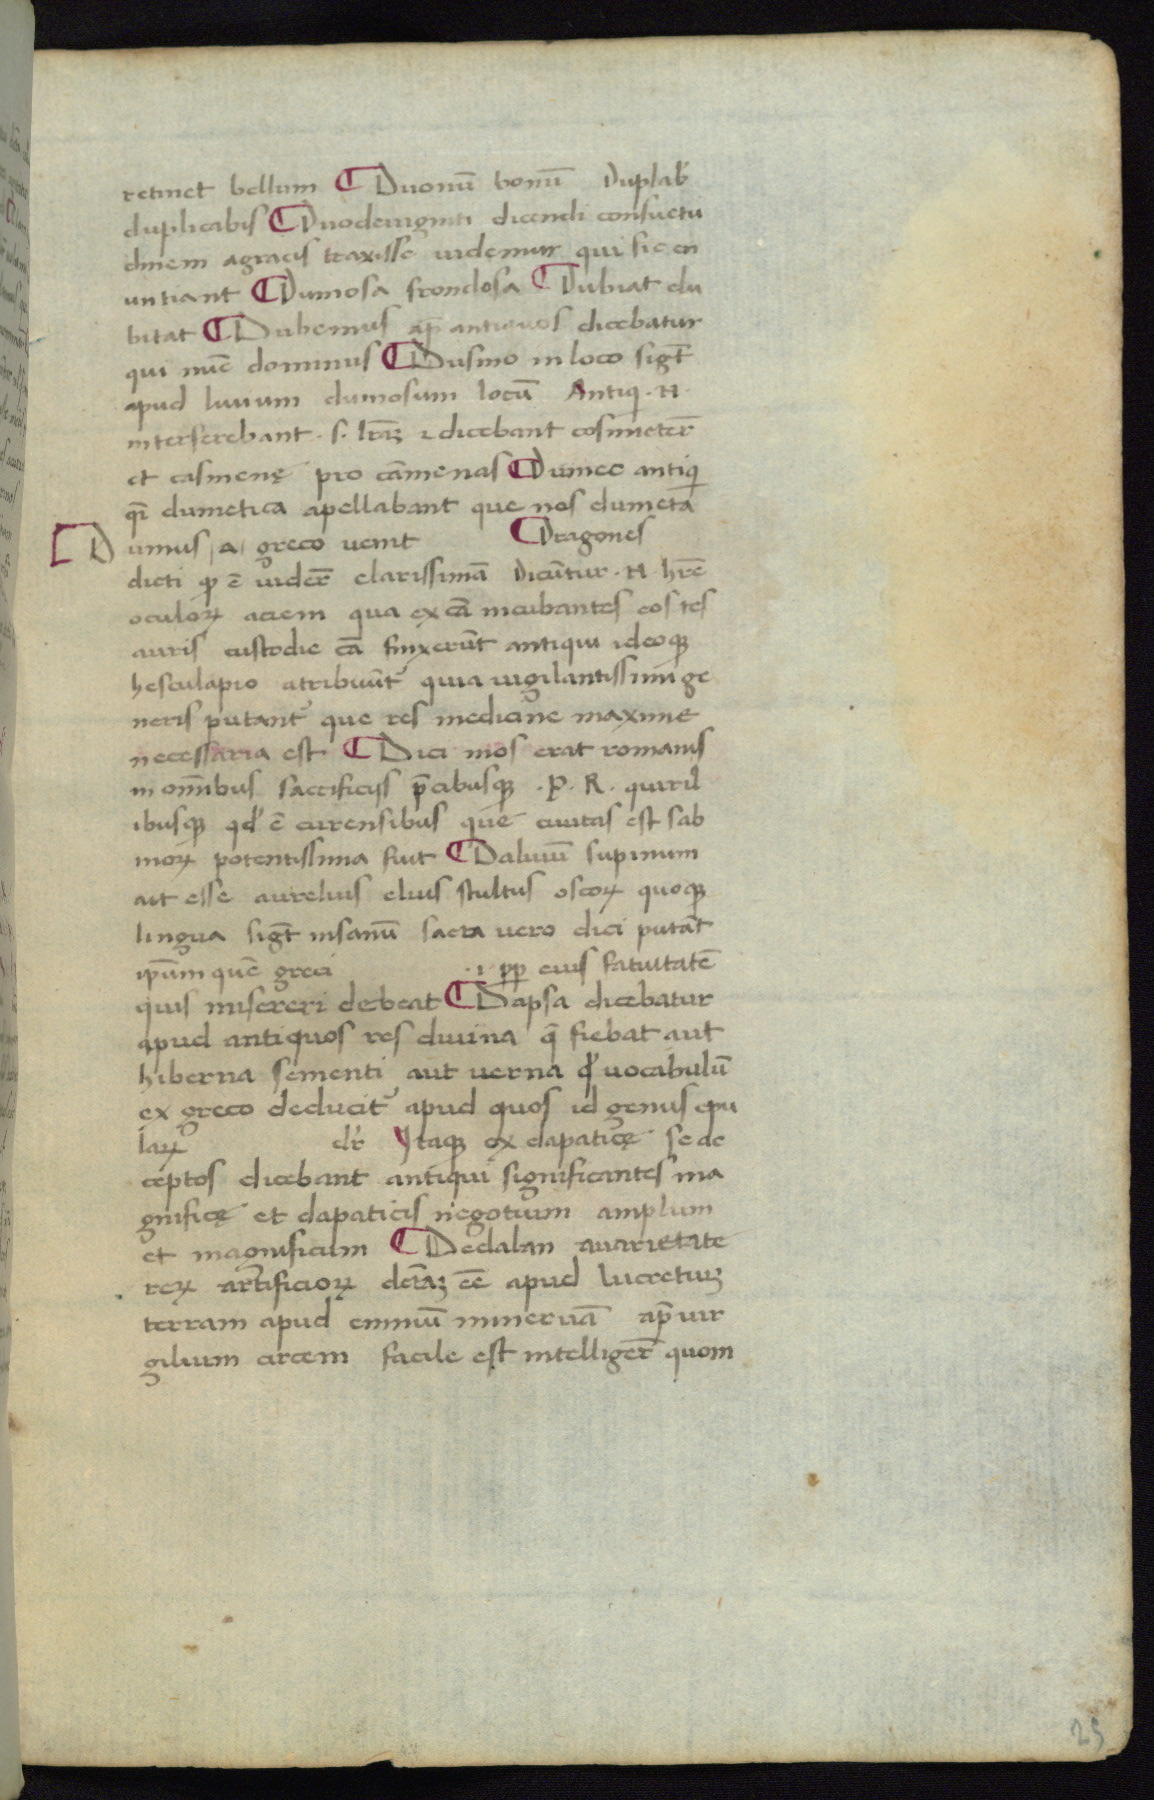 retinet bellum ¶ Duonū bonū Duplab̓
duplicabis ¶ Duodeuiginti dicendi consuetu
dinem agrecis traxisse uidemur qui sic en
untiant ¶ Dumosa frondosa ¶ Dubiat du
bitat ¶ Dubenus ap̄ antiquos dicebatur
qui nūc dominus ¶ Dusmo in loco sigt̄
apud liuium dumosum locū Antiqi · N ·
interserebant · s · lr̄aꝫ ⁊ dicebant cosmiter̄
et casmenę pro cāmenas ¶ Dumec antiqi
qr̄ dumetica apellabant que nos dumeta
¶ Dumus a greco uenit ¶ Dragones
dicti qͥ ē uider̄ clarissimā Dicūtur · N · hr̄e
oculoꝝ aciem qua ex cā incubantes eos tes
auris custodie cā finxerūt antiqui ideoqꝫ
hesculapio atribuūt᷑ quia uigilantissimi ge
neris putant᷑ que res medicine maxime
necessaria est ¶ Dici mos erat romanis
in oīnibus sacrificijs p̄cibusqꝫ · P · R · quiril
ibusqꝫ qd̓ ē curensibus que ciuitas est sab
inoꝝ potentissima fuit ¶ Daliuū supinum
ait esse aurelius elius stultus oscoꝝ quoqꝫ
lingua sigt̄ insanū sacra uero dici putāt
ip̄um quē greci · ı · pp̄ cuius fatuitatē
quis misereri debeat ¶ Dapsa dicebatur
apud antiquos res diuina q̄ fiebat aut
hiberna sementi aut uerna qd̓ uocabulū
ex greco deducit᷑ apud quos id genus epu
laꝝ dr̄ Itaqꝫ ex dapaticę se ac
ceptos dicebant antiqui significantes ma
gnificę et dapaticis negotium amplum
et magnificum ¶ Dedalan auarietate
reꝝ artificioꝝ dct̄aꝫ eē apud lucretiuꝫ
terram apud enniū mineruā ap̄ uir
gilium circem facile est intelliger̄ quom
25